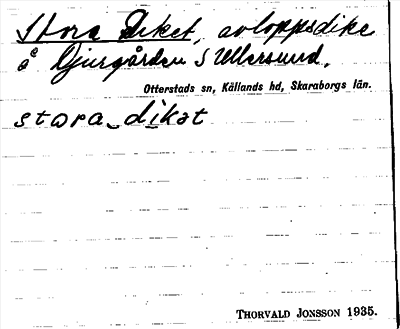 Stora Diket, avloppsdike
å Djurgården S Ullersund.
Otterstads sn, Kållands hd, Skaraborgs län.
stora_dikat
THORVALD JONSSON 1935.